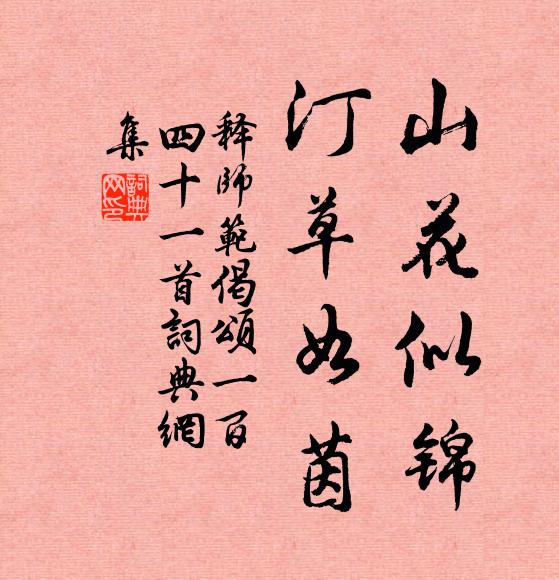 山花似锦
汀草如茵
释師範偈頌一百
四十一首詞典網
集
詞典
网印